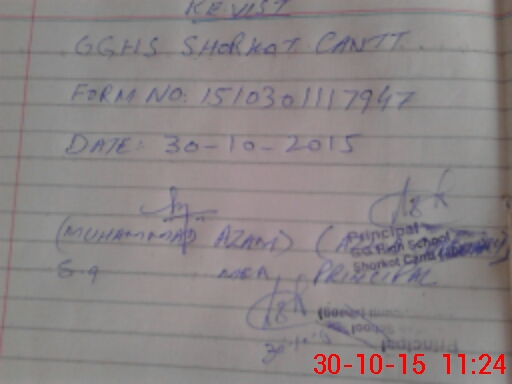 REVIST
GGHS SHORKOT CANTT.
FORM NO: 1510301117947
DATE: 30-10-2015
(MUHAMMAD AZAM) (
Principal
GG High School
Shorkot Cantt
MEA, PRINCIPAL
Principal
30-10-15
30-10-15 11:24